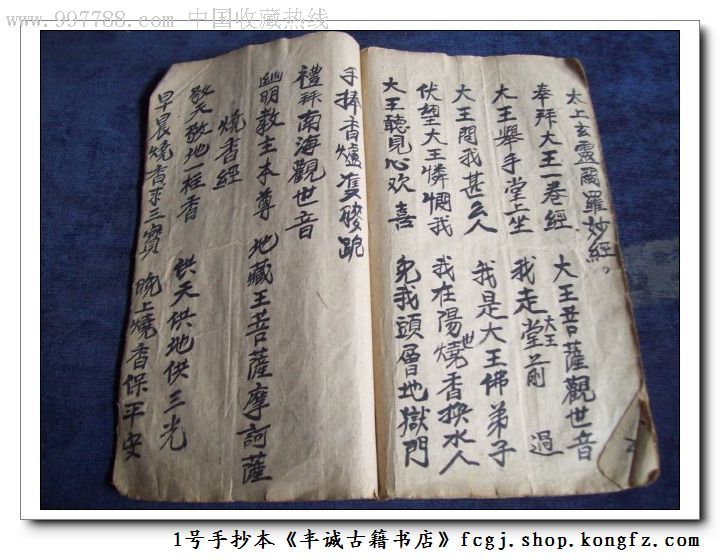 www.997788.com 中国收藏热线
太上玄靈閻羅妙經。
奉拜大王一卷經 大王菩薩觀世音
大王舉手堂上坐 我走大王堂前過
大王問我甚么人 我是大王佛弟子
伏望大王憐憫我 我在陽世燒香换水人
大王聽見心欢喜 免我頭層地獄門
手捧香爐隻膝跪
禮拜南海觀世音
幽明教主本尊 地藏王菩薩摩訶薩
燒香經
敬天敬地一柱香 供天供地供三光
早晨燒香求三寳 晚上燒香保平安
1号手抄本《丰诚古籍书店》fcgj.shop.kongfz.com